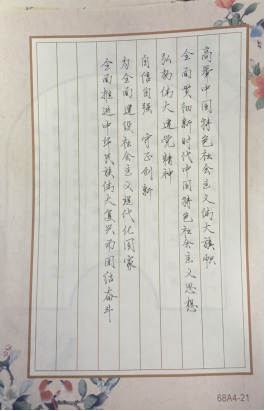 高举中国特色社会主义伟大旗帜
全面贯彻新时代中国特色社会主义思想
弘扬伟大建党精神
自信自强 守正创新
为全面建设社会主义现代化国家
全面推进中华民族伟大复兴而团结奋斗
68A4-21